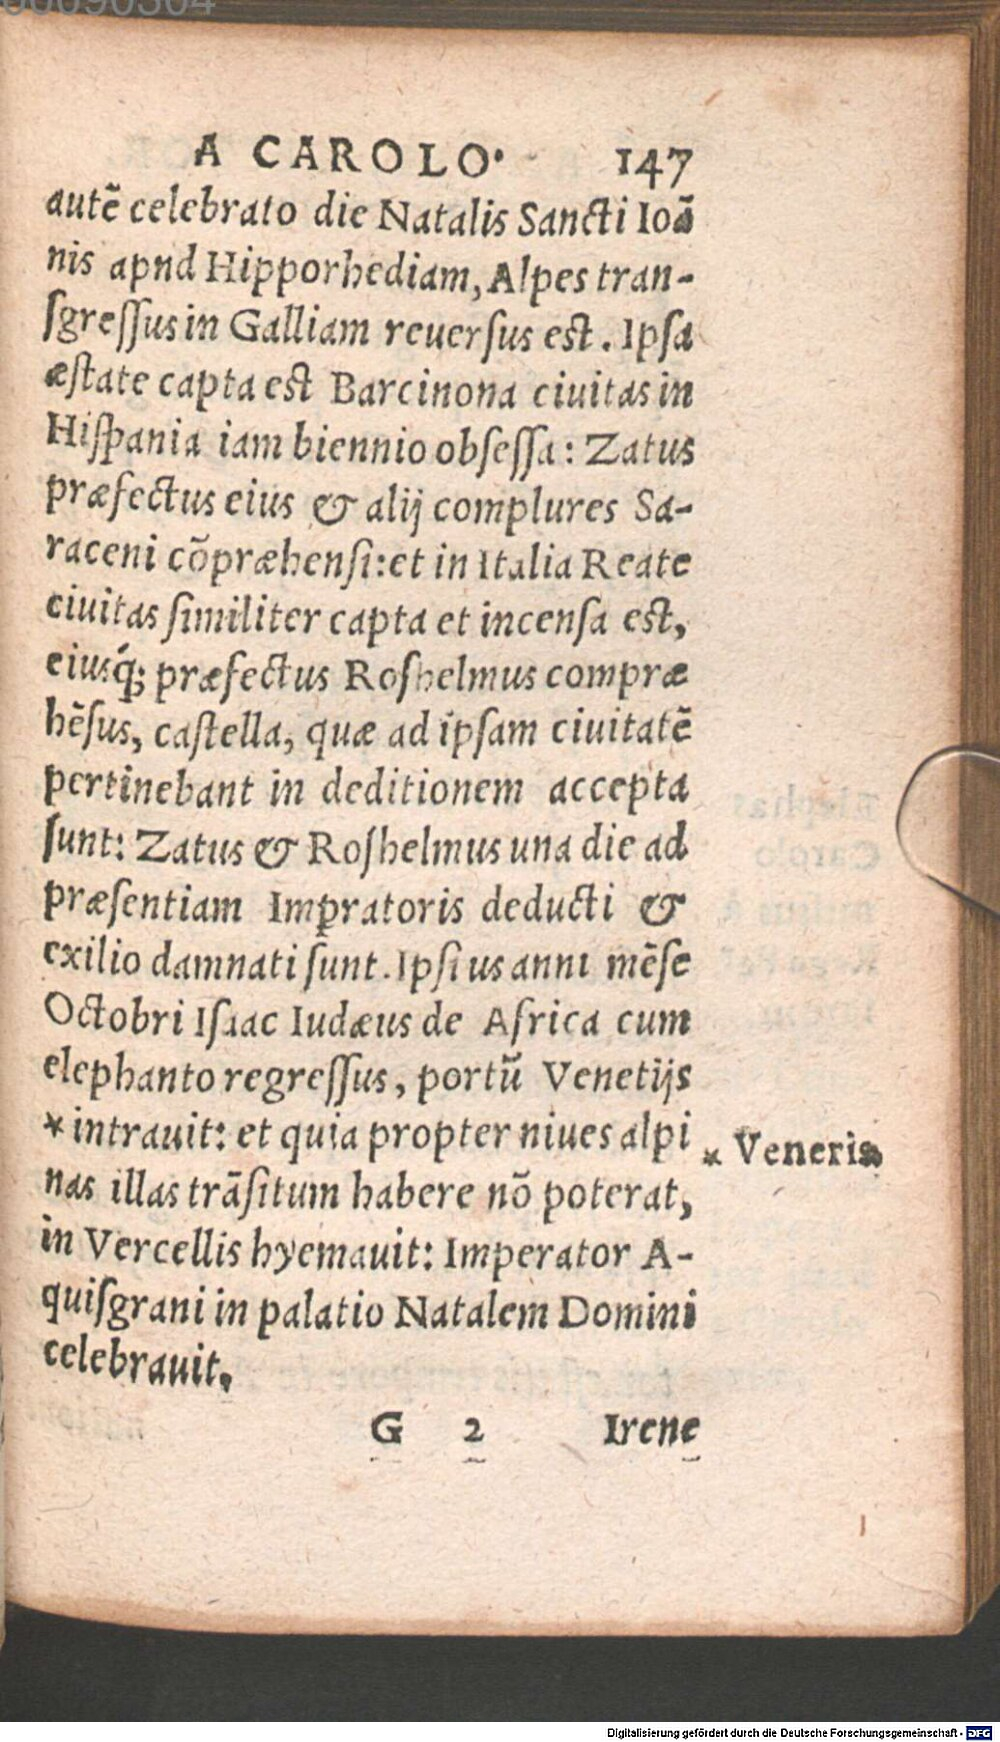 A CAROLO. 147
autẽ celebrato die Natalis Sancti Ioã
nis apnd Hipporhediam, Alpes tran-
ſgreſſus in Galliam reuerſus est. Ipſa
æſtate capta est Barcinona ciuitas in
Hiſpania iam biennio obſeſſa: Zatus
præfectus eius & alij complures Sa-
raceni cõpræhenſi: et in Italia Reate
ciuitas ſimiliter capta et incenſa est,
eiusq́; præfectus Roſhelmus compræ
hẽſus, caſtella, quæ ad ipſam ciuitatẽ
pertinebant in deditionem accepta
ſunt: Zatus & Roſhelmus una die ad
præſentiam Imp̱ratoris deducti &
exilio damnati ſunt. Ipſius anni mẽſe
Octobri Iſaac Iudæus de Africa cum
elephanto regreſſus, portũ Venetijs
* intrauit: et quia propter niues alpi
* Veneris
nas illas trãſitum habere nõ poterat,
in Vercellis hyemauit: Imperator A-
quiſgrani in palatio Natalem Domini
celebrauit.
G 2 Irene
Digitalisierung gefördert durch die Deutsche Forschungsgemeinschaft - DFG